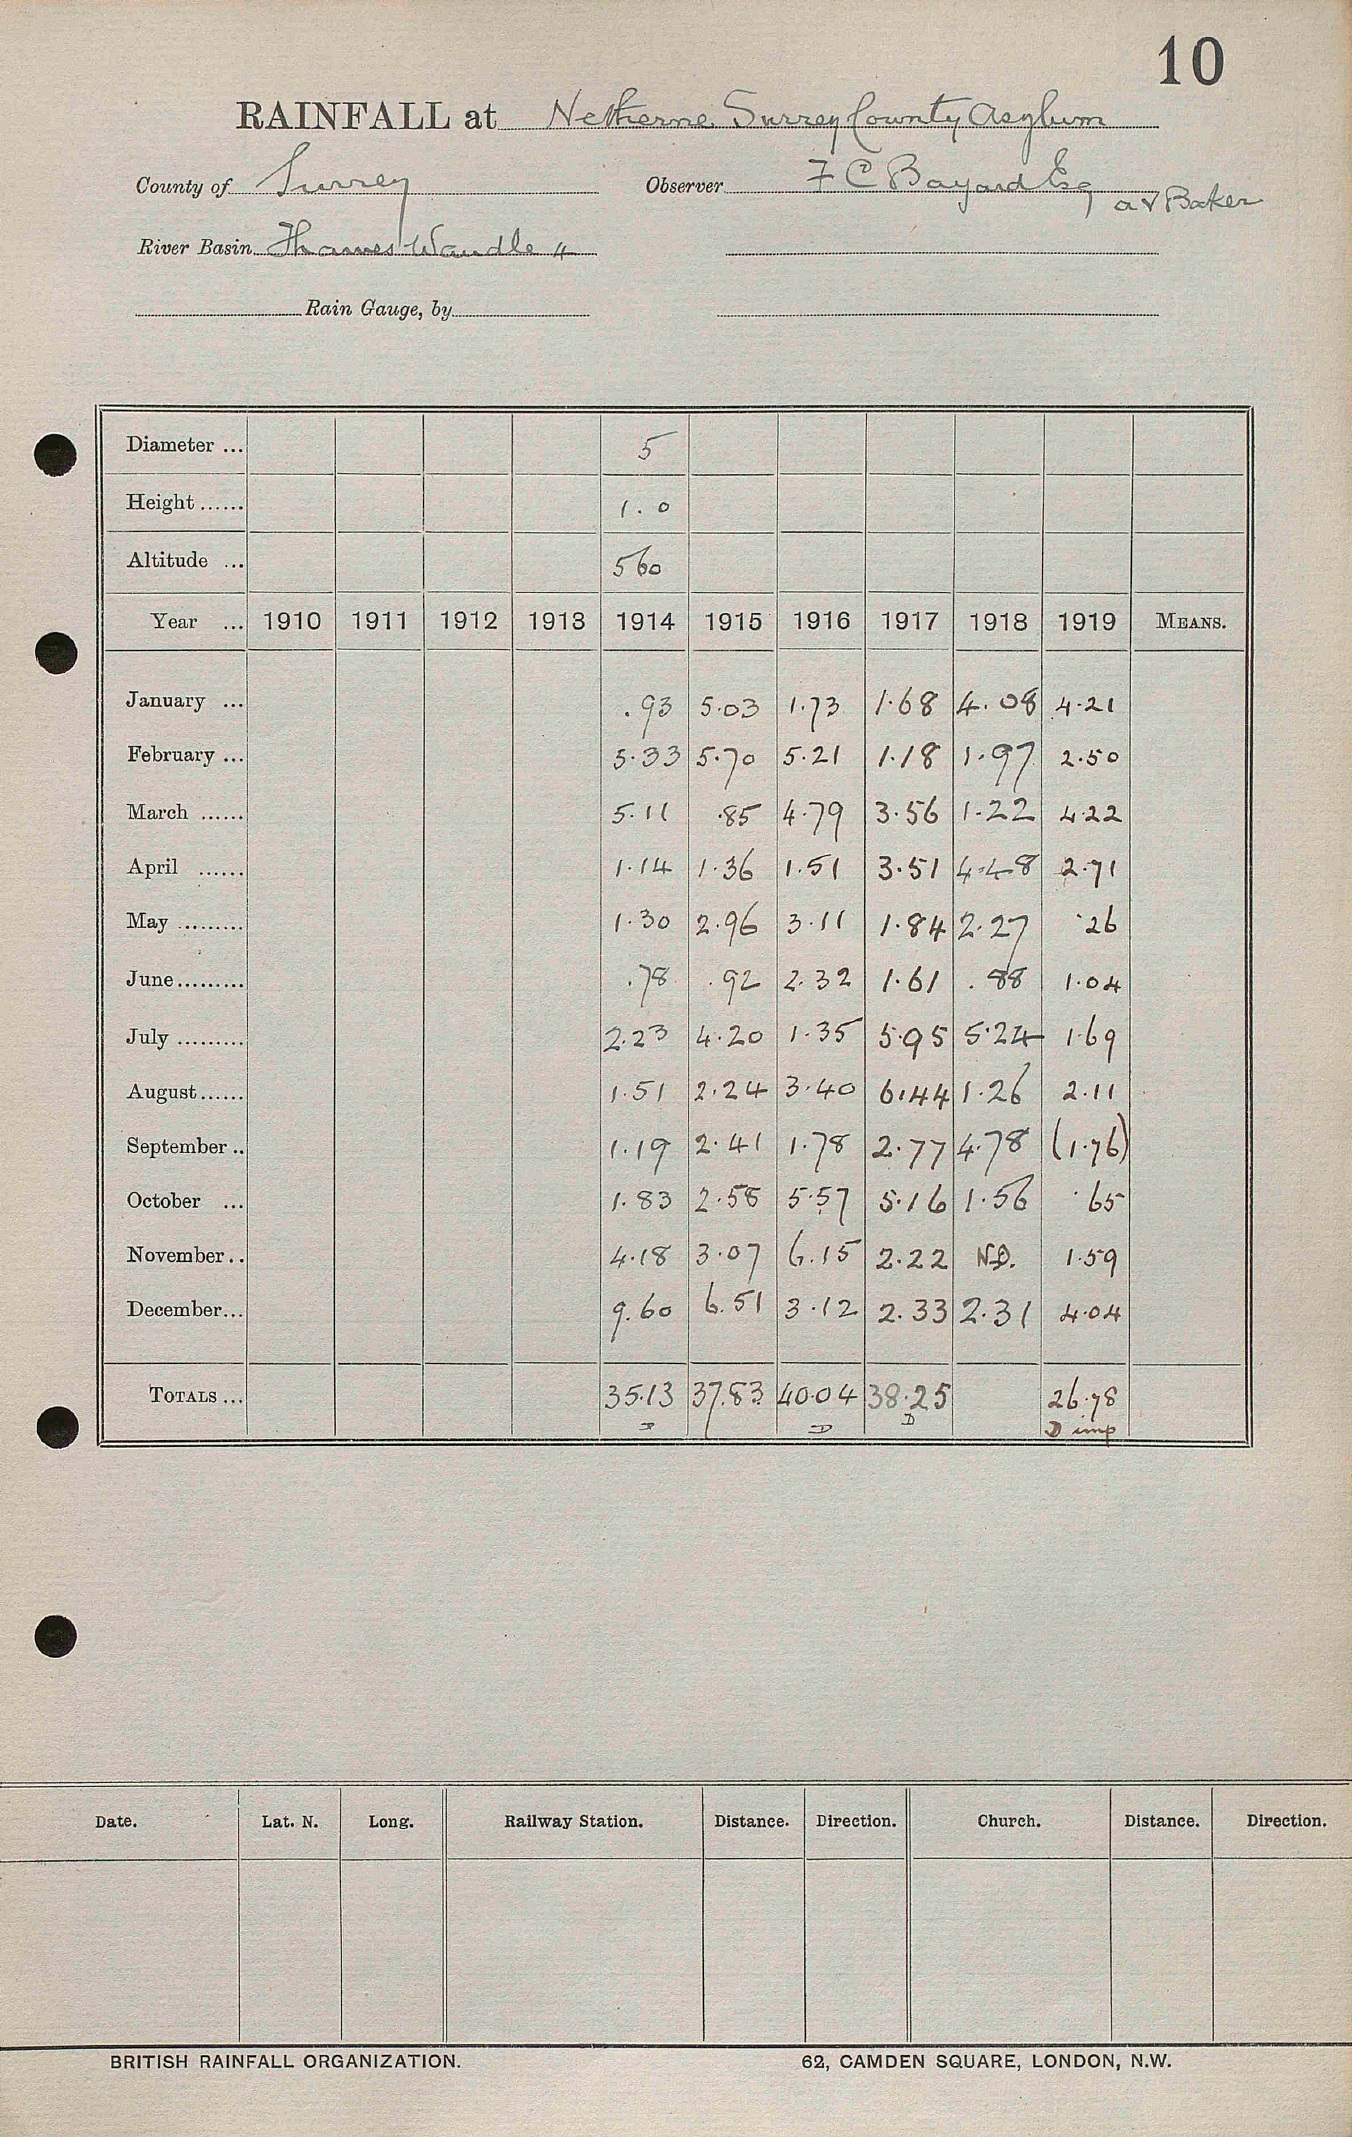 10
RAINFALL at Netherne Surrey County Asylum
County of Surrey Observer F C Bayard Esq
a V Baker
River Basin Thames Wandle 4
Rain Gauge, by
Diameter ... 5
Height ...... 1.0
Altitude ... 560
Year ... 1910 1911 1912 1913 1914 1915 1916 1917 1918 1919 MEANS.
January ... .93 5.03 1.73 1.68 4.08 4.21
February ... 5.33 5.70 5.21 1.18 1.97 2.50
March ...... 5.11 .85 4.79 3.56 1.22 4.22
April ...... 1.14 1.36 1.51 3.51 4.48 2.71
May ......... 1.30 2.96 3.11 1.84 2.27 .26
June ......... .78 .92 2.32 1.61 .88 1.04
July ......... 2.23 4.20 1.35 5.95 5.24 1.69
August ...... 1.51 2.24 3.40 6.44 1.26 2.11
September .. 1.19 2.41 1.78 2.77 4.78 (1.76)
October ... 1.83 2.58 5.57 5.16 1.56 .65
November .. 4.18 3.07 6.15 2.22 N.D. 1.59
December ... 9.60 6.51 3.12 2.33 2.31 4.04
TOTALS ... 35.13 37.83 40.04 38.25 26.78
D D D D imp
Date. Lat. N. Long. Railway Station. Distance. Direction. Church. Distance. Direction.
BRITISH RAINFALL ORGANIZATION. 62, CAMDEN SQUARE, LONDON, N.W.